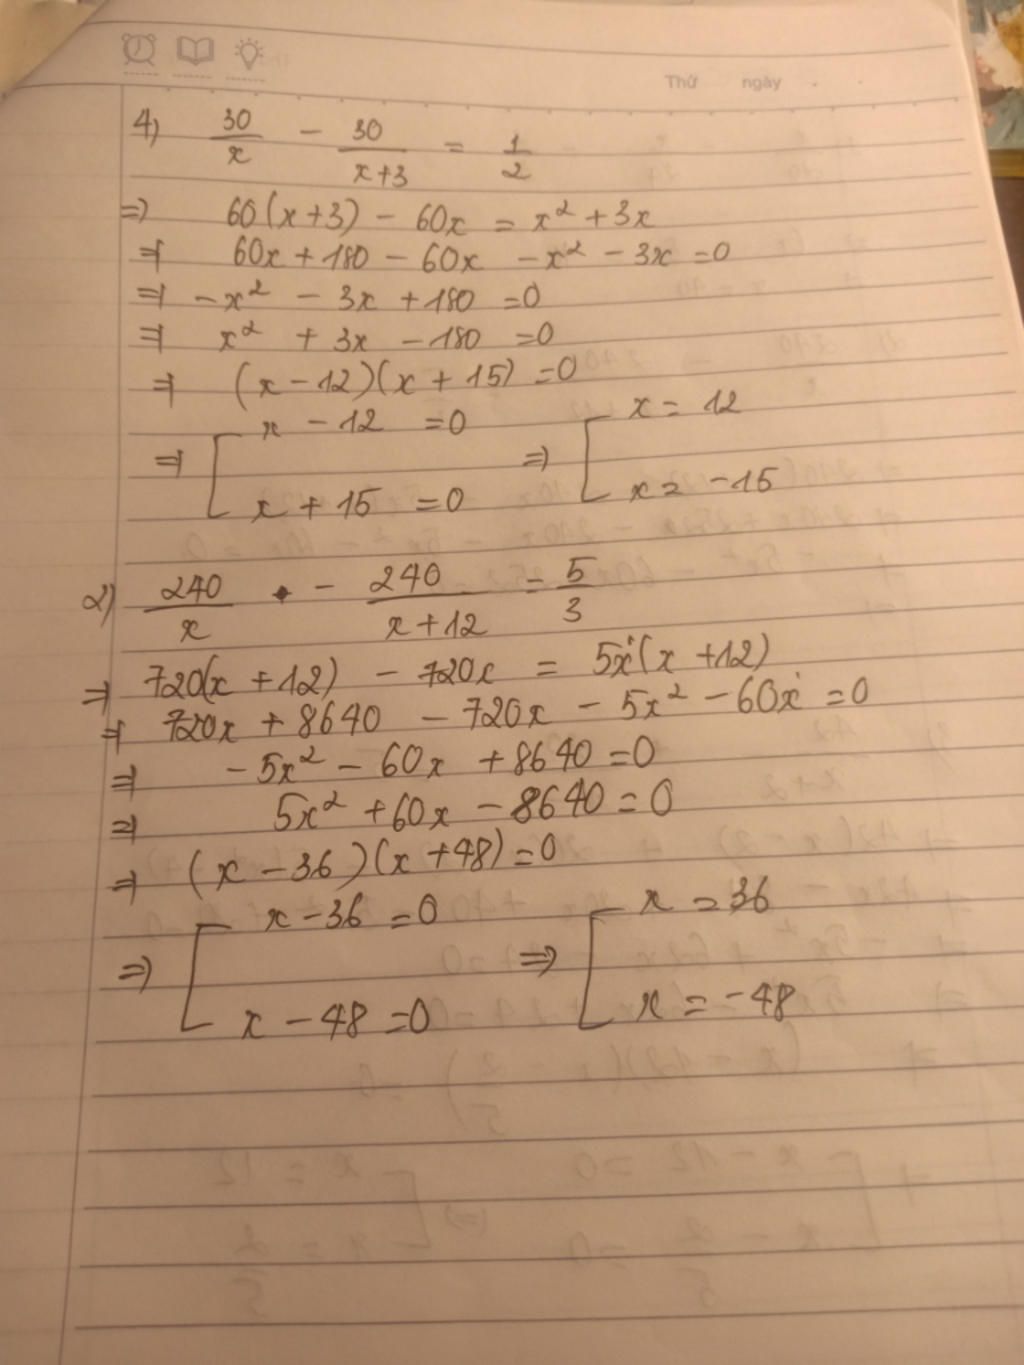 Thứ ngày
1) 30/x - 30/(x+3) = 1/2
=> 60(x+3) - 60x = x² + 3x
=> 60x + 180 - 60x - x² - 3x = 0
=> -x² - 3x + 180 = 0
=> x² + 3x - 180 = 0
=> (x - 12)(x + 15) = 0
=> [ x - 12 = 0 => [ x = 12
x + 15 = 0 x = -15
2) 240/x - 240/(x+12) = 5/3
=> 720(x + 12) - 720x = 5x(x + 12)
=> 720x + 8640 - 720x - 5x² - 60x = 0
=> -5x² - 60x + 8640 = 0
=> 5x² + 60x - 8640 = 0
=> (x - 36)(x + 48) = 0
=> [ x - 36 = 0 => [ x = 36
x - 48 = 0 x = -48